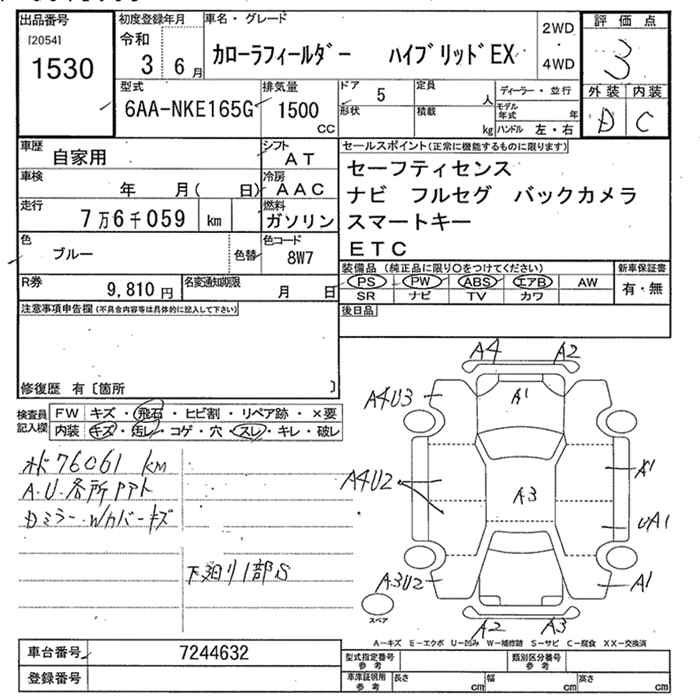 出品番号 初度登録年月 車名・グレード 2WD 評価点
[2054] 令和 カローラフィールダー ハイブリッドEX ・ 3
1530 3 6月 4WD 外装 内装
型式 排気量 ドア 5 定員 人 ディーラー・並行 D C
6AA-NKE165G 1500 cc 形状 積載 kg モデル年式 年 ハンドル 左・右
車歴 自家用 シフト AT セールスポイント(正常に機能するものに限ります)
車検 年 月( 日) 冷房 AAC セーフティセンス
ナビ フルセグ バックカメラ
走行 7万6千059 km 燃料 ガソリン スマートキー
色 ブルー 色替 色コード 8W7 ETC
装備品(純正品に限り○をつけてください) 新車保証書
R券 9,810円 名変通知期限 月 日 PS PW ABS エアB AW 有・無
SR ナビ TV カワ
注意事項申告欄(不具合内容等は具体的に記入して下さい) 後日品
修復歴 有〔箇所 〕
検査員記入欄 FW キズ・飛石・ヒビ割・リペア跡・×要
内装 キズ・汚レ・コゲ・穴・スレ・キレ・破レ
A4 A2
A4U3 A1
76061 km
A4U2 A3 A1
A.U.各所
Dミラー.Wカバーキズ UA1
下廻り1部S
A3U2 A1
A2 A3
スペア
A-キズ E-エクボ U-凹み W-補修跡 S-サビ C-腐食 XX-交換済
車台番号 7244632 型式指定番号参考 類別区分番号参考
登録番号 車庫証明用参考 長さ cm 幅 cm 高さ cm